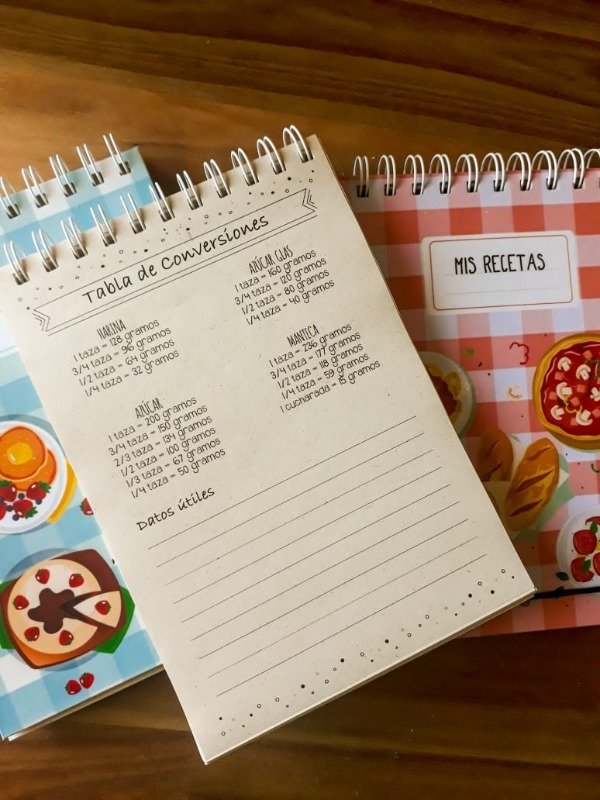 Tabla de Conversiones
HARINA
1 taza = 128 gramos
3/4 taza = 96 gramos
1/2 taza = 64 gramos
1/4 taza = 32 gramos
AZÚCAR
1 taza = 200 gramos
3/4 taza = 150 gramos
2/3 taza = 134 gramos
1/2 taza = 100 gramos
1/3 taza = 67 gramos
1/4 taza = 50 gramos
AZÚCAR GLAS
1 taza = 160 gramos
3/4 taza = 120 gramos
1/2 taza = 80 gramos
1/4 taza = 40 gramos
MANTECA
1 taza = 236 gramos
3/4 taza = 177 gramos
1/2 taza = 118 gramos
1/4 taza = 59 gramos
1 cucharada = 15 gramos
Datos útiles
MIS RECETAS